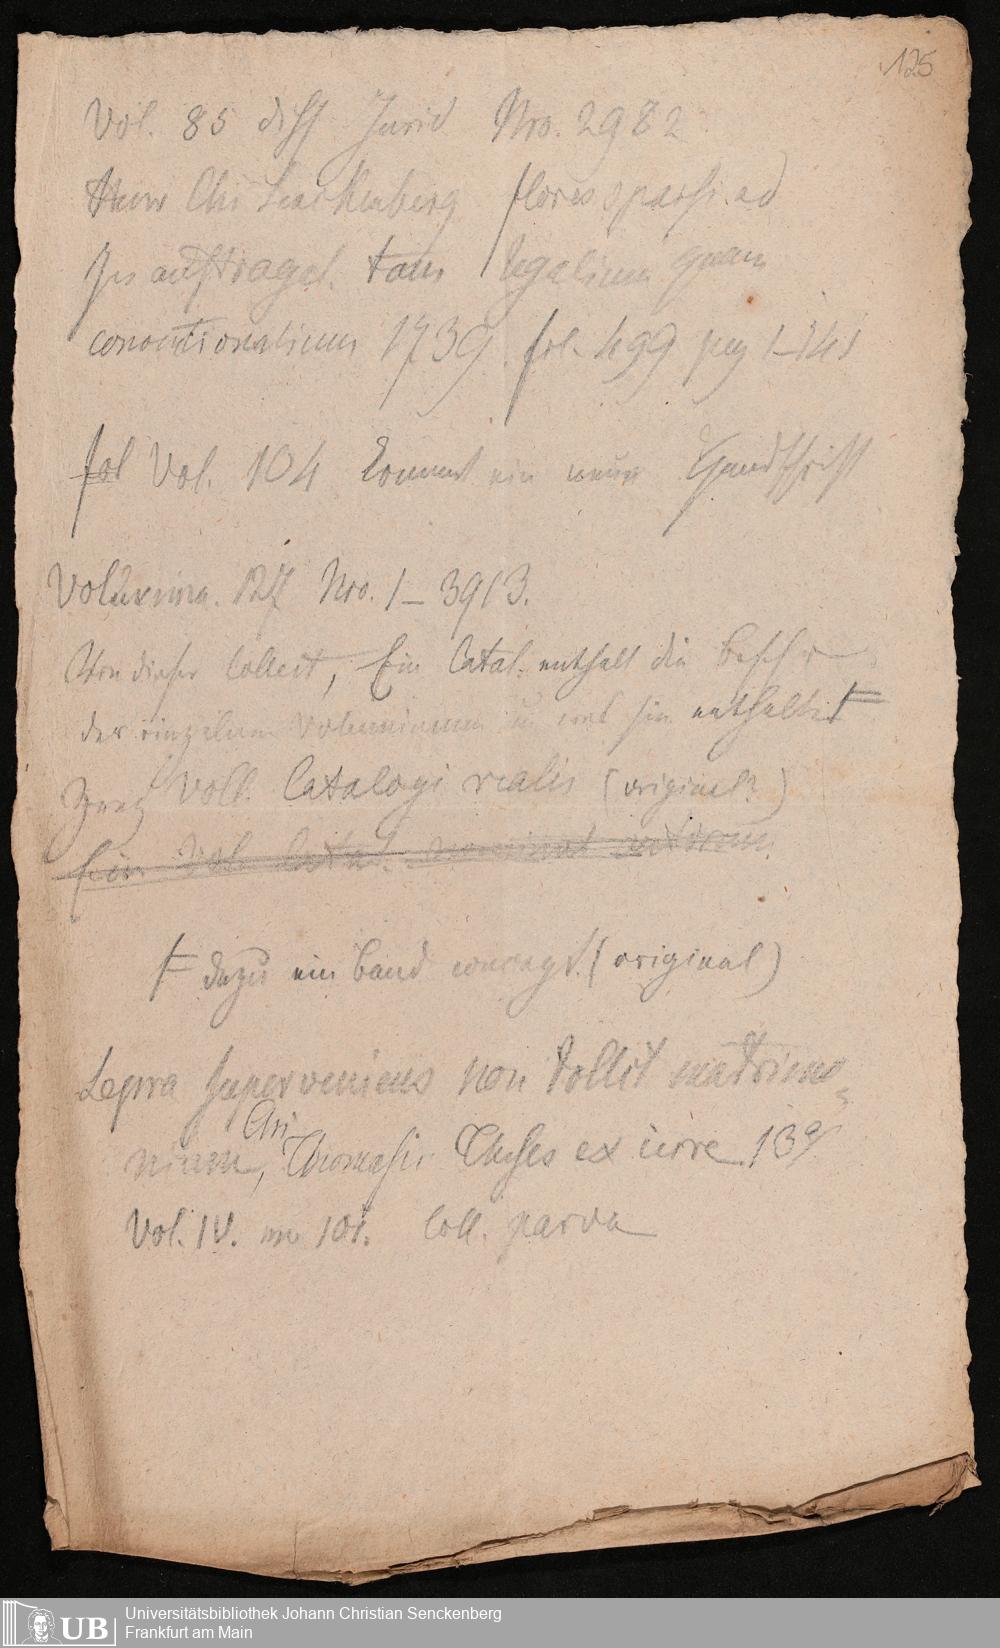 125
Vol. 85 diss Jurid Nro. 2982
Henr Chr Senckenberg flores sparsi ad
Jus austragal. tam legalium quam
conventionalium 1739. fol. 499 pag 1–141
fol Vol. 104 kommt ein neue Handschrift
Volumina. 127 Nro. 1–3913.
Von dieser Collect, Ein Catal. enthalt die
der einzelnen Voluminum u was sie enthalten
Zwey Voll. Catalogi realis (original)
Ein Vol. Catal.
dazu ein Band (original)
Lepra superveniens non tollit matrimo=
nium, Chr Thomasii Theses ex iure
Vol. IV. no 101. Coll. parva
UB Universitätsbibliothek Johann Christian Senckenberg
Frankfurt am Main